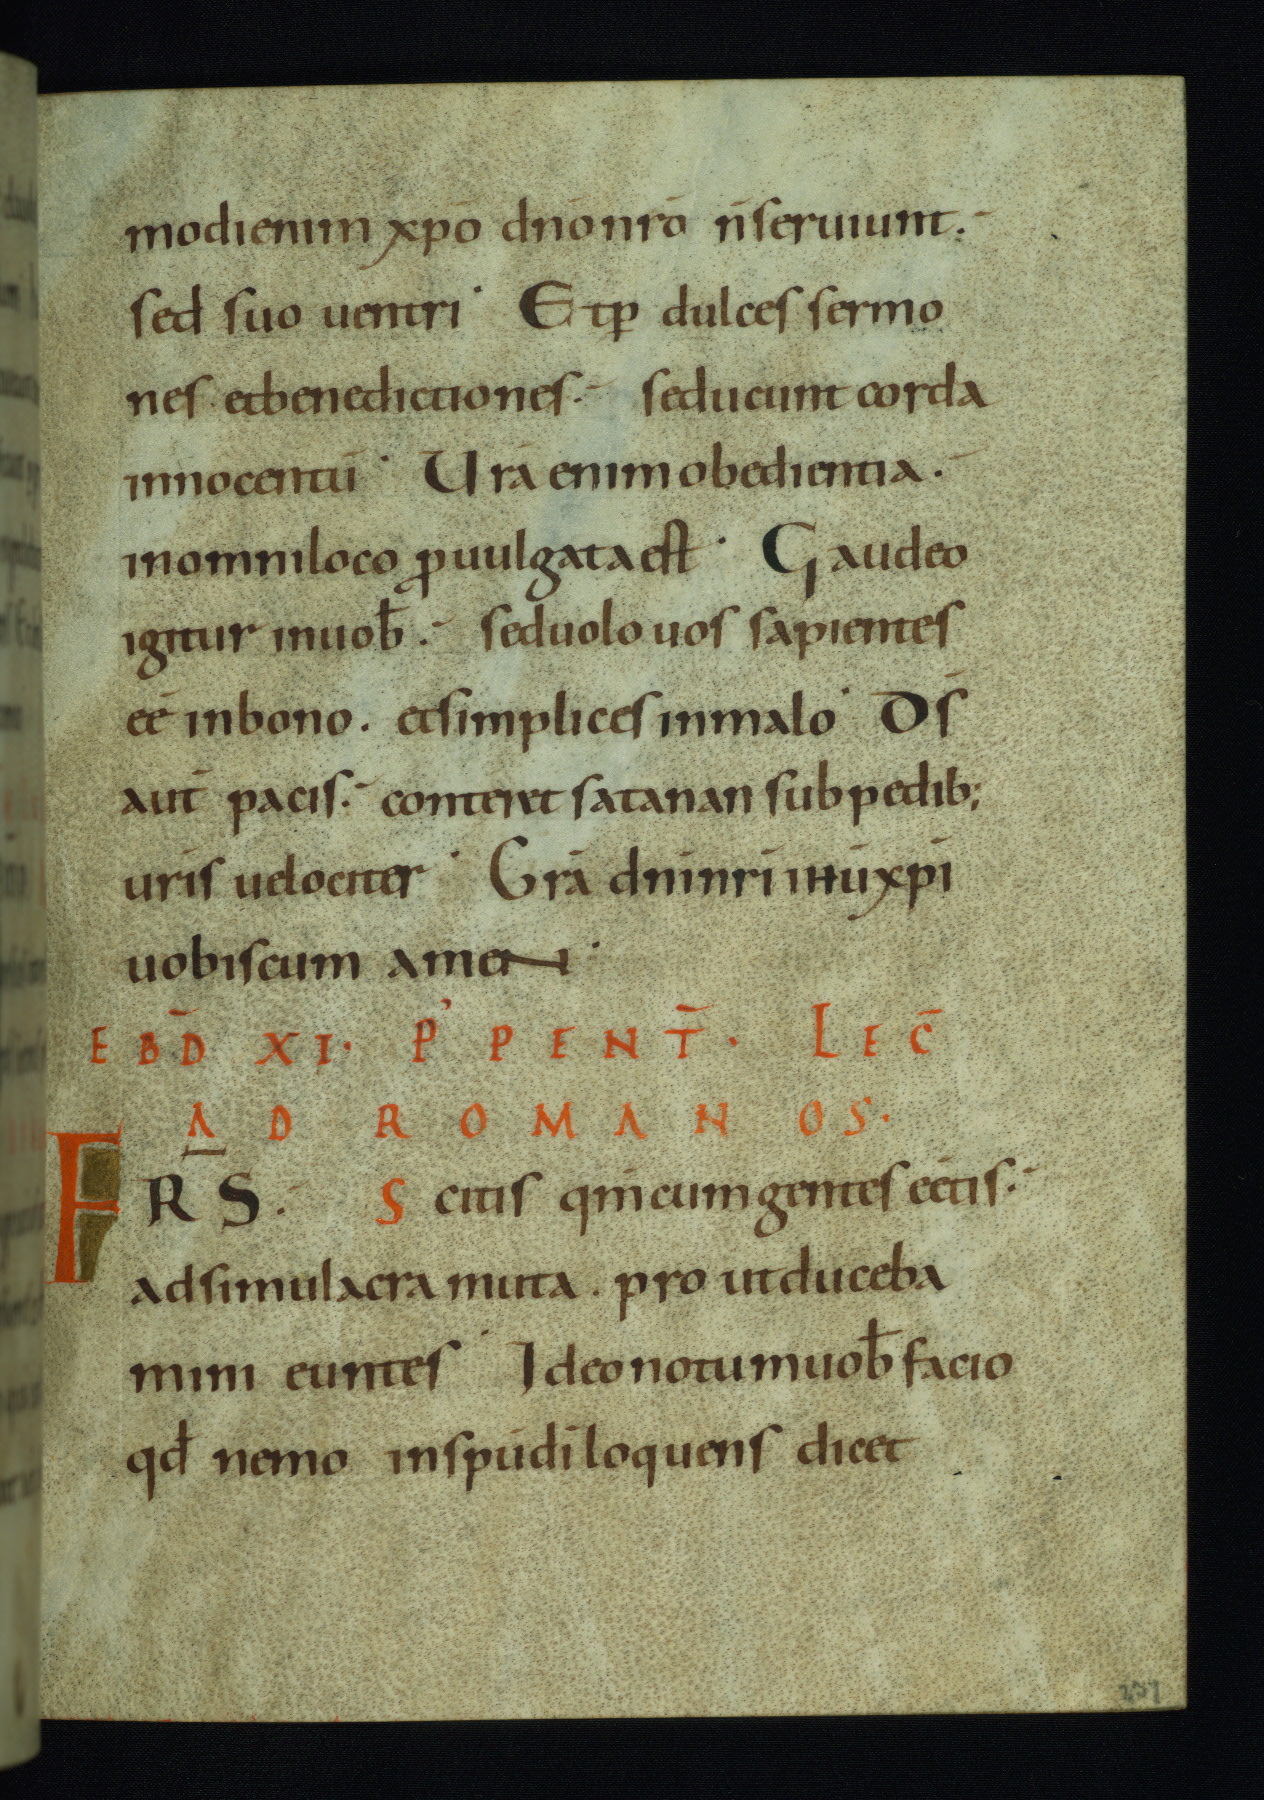 modi enim xpō dnō nrō n̄ seruiunt.
sed suo uentri· Et ꝑ dulces sermo
nes et benedictiones· seducunt corda
innocentū· Urā enim obedientia·
in omni loco ꝓuulgata est· Gaudeo
igitur in uob̄· sed uolo uos sapientes
eē in bono. et simplices in malo· Ds̄
aut̄ pacis· conteret satanan sub pedib;
urīs uelociter· Grā dnī nrī ihū xpī
uobiscum amen·
EBD̄ XI· P' PENT̄· LEC̄
AD ROMANOS·
FRS̄· Scitis qm̄ cum gentes eētis·
ad simulacra muta. pro ut duceba
mini euntes· Ideo notum uob̄ facio
qd̄ nemo in spū dī loquens dicet